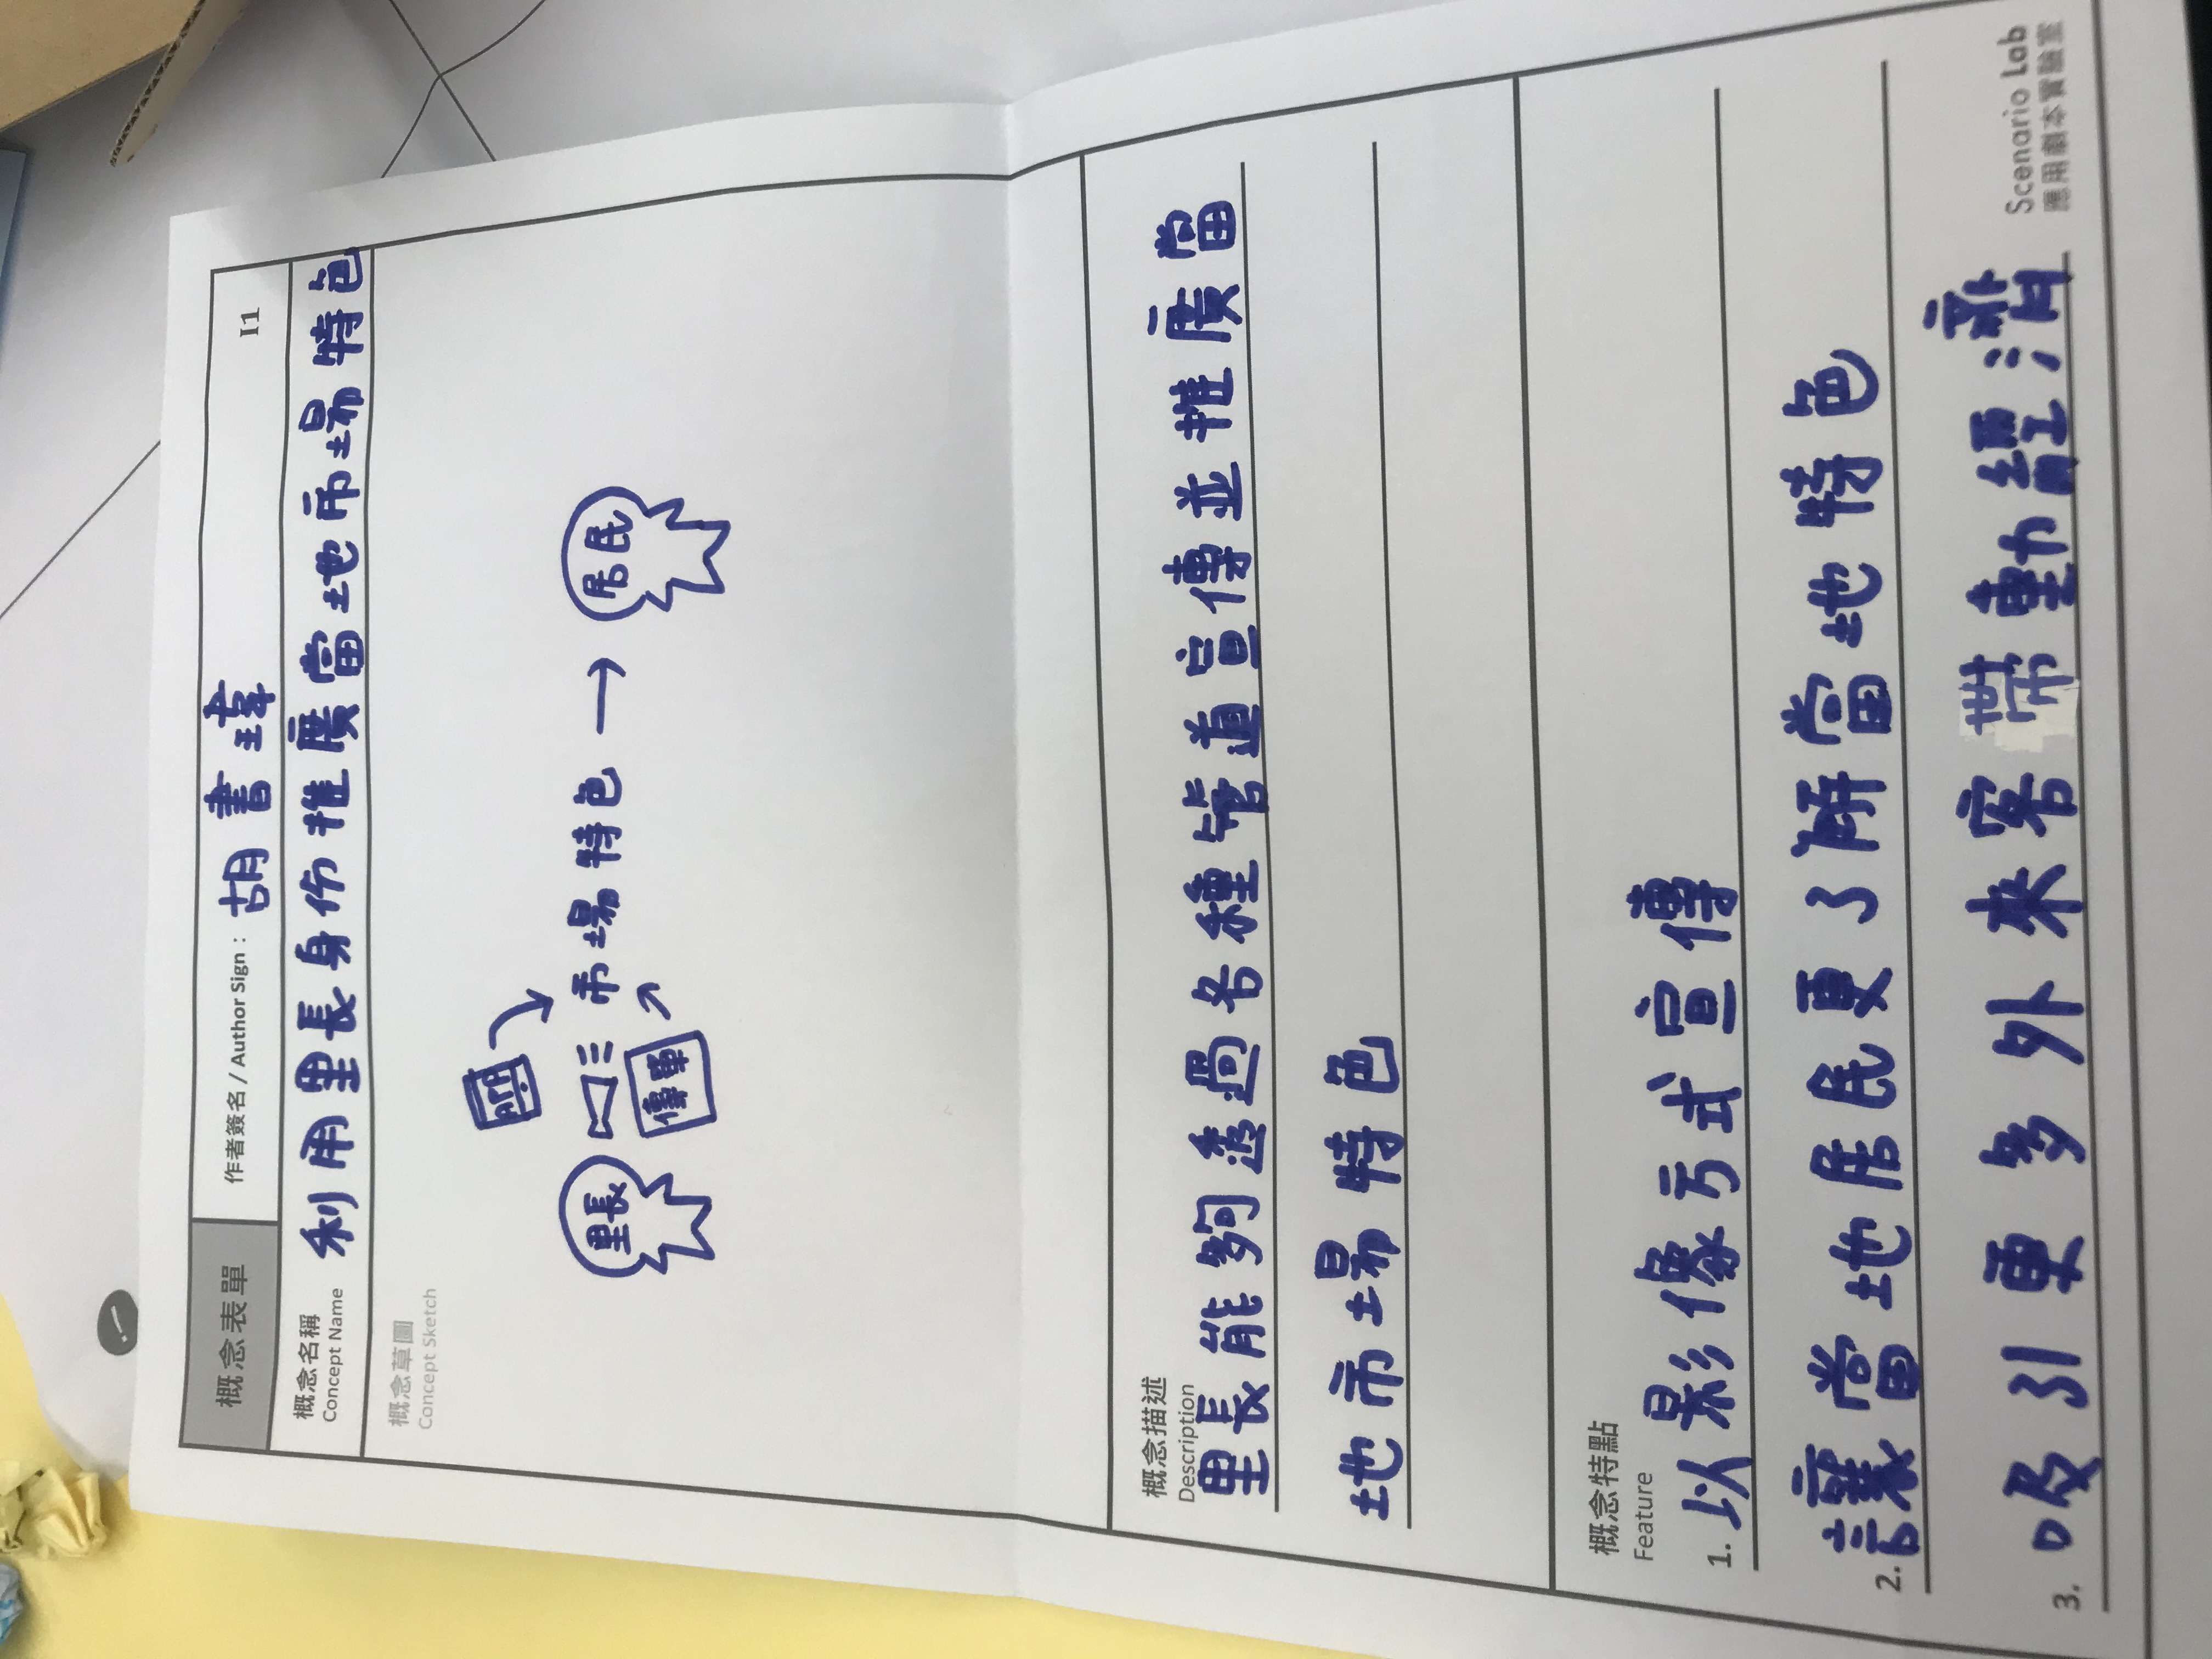 概念表單 作者簽名 / Author Sign : 胡書瑋 I1
概念名稱
Concept Name 利用里長身份推廣當地市場特色
概念草圖
Concept Sketch
APP
里長 市場特色 居民
傳單
概念描述
Description
里長能夠透過各種管道宣傳並推廣當
地市場特色
概念特點
Feature
1. 以影像方式宣傳
2. 讓當地居民更了解當地特色
3. 吸引更多外來客帶動經濟
Scenario Lab
應用劇本實驗室